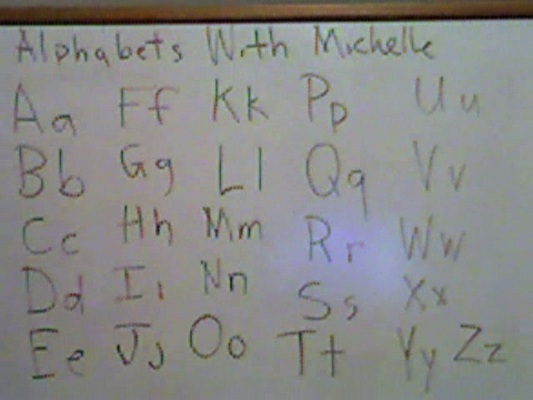 Alphabets With Michelle
Aa Ff Kk Pp Uu
Bb Gg Ll Qq Vv
Cc Hh Mm Rr Ww
Dd Ii Nn Ss Xx
Ee Jj Oo Tt Yy Zz